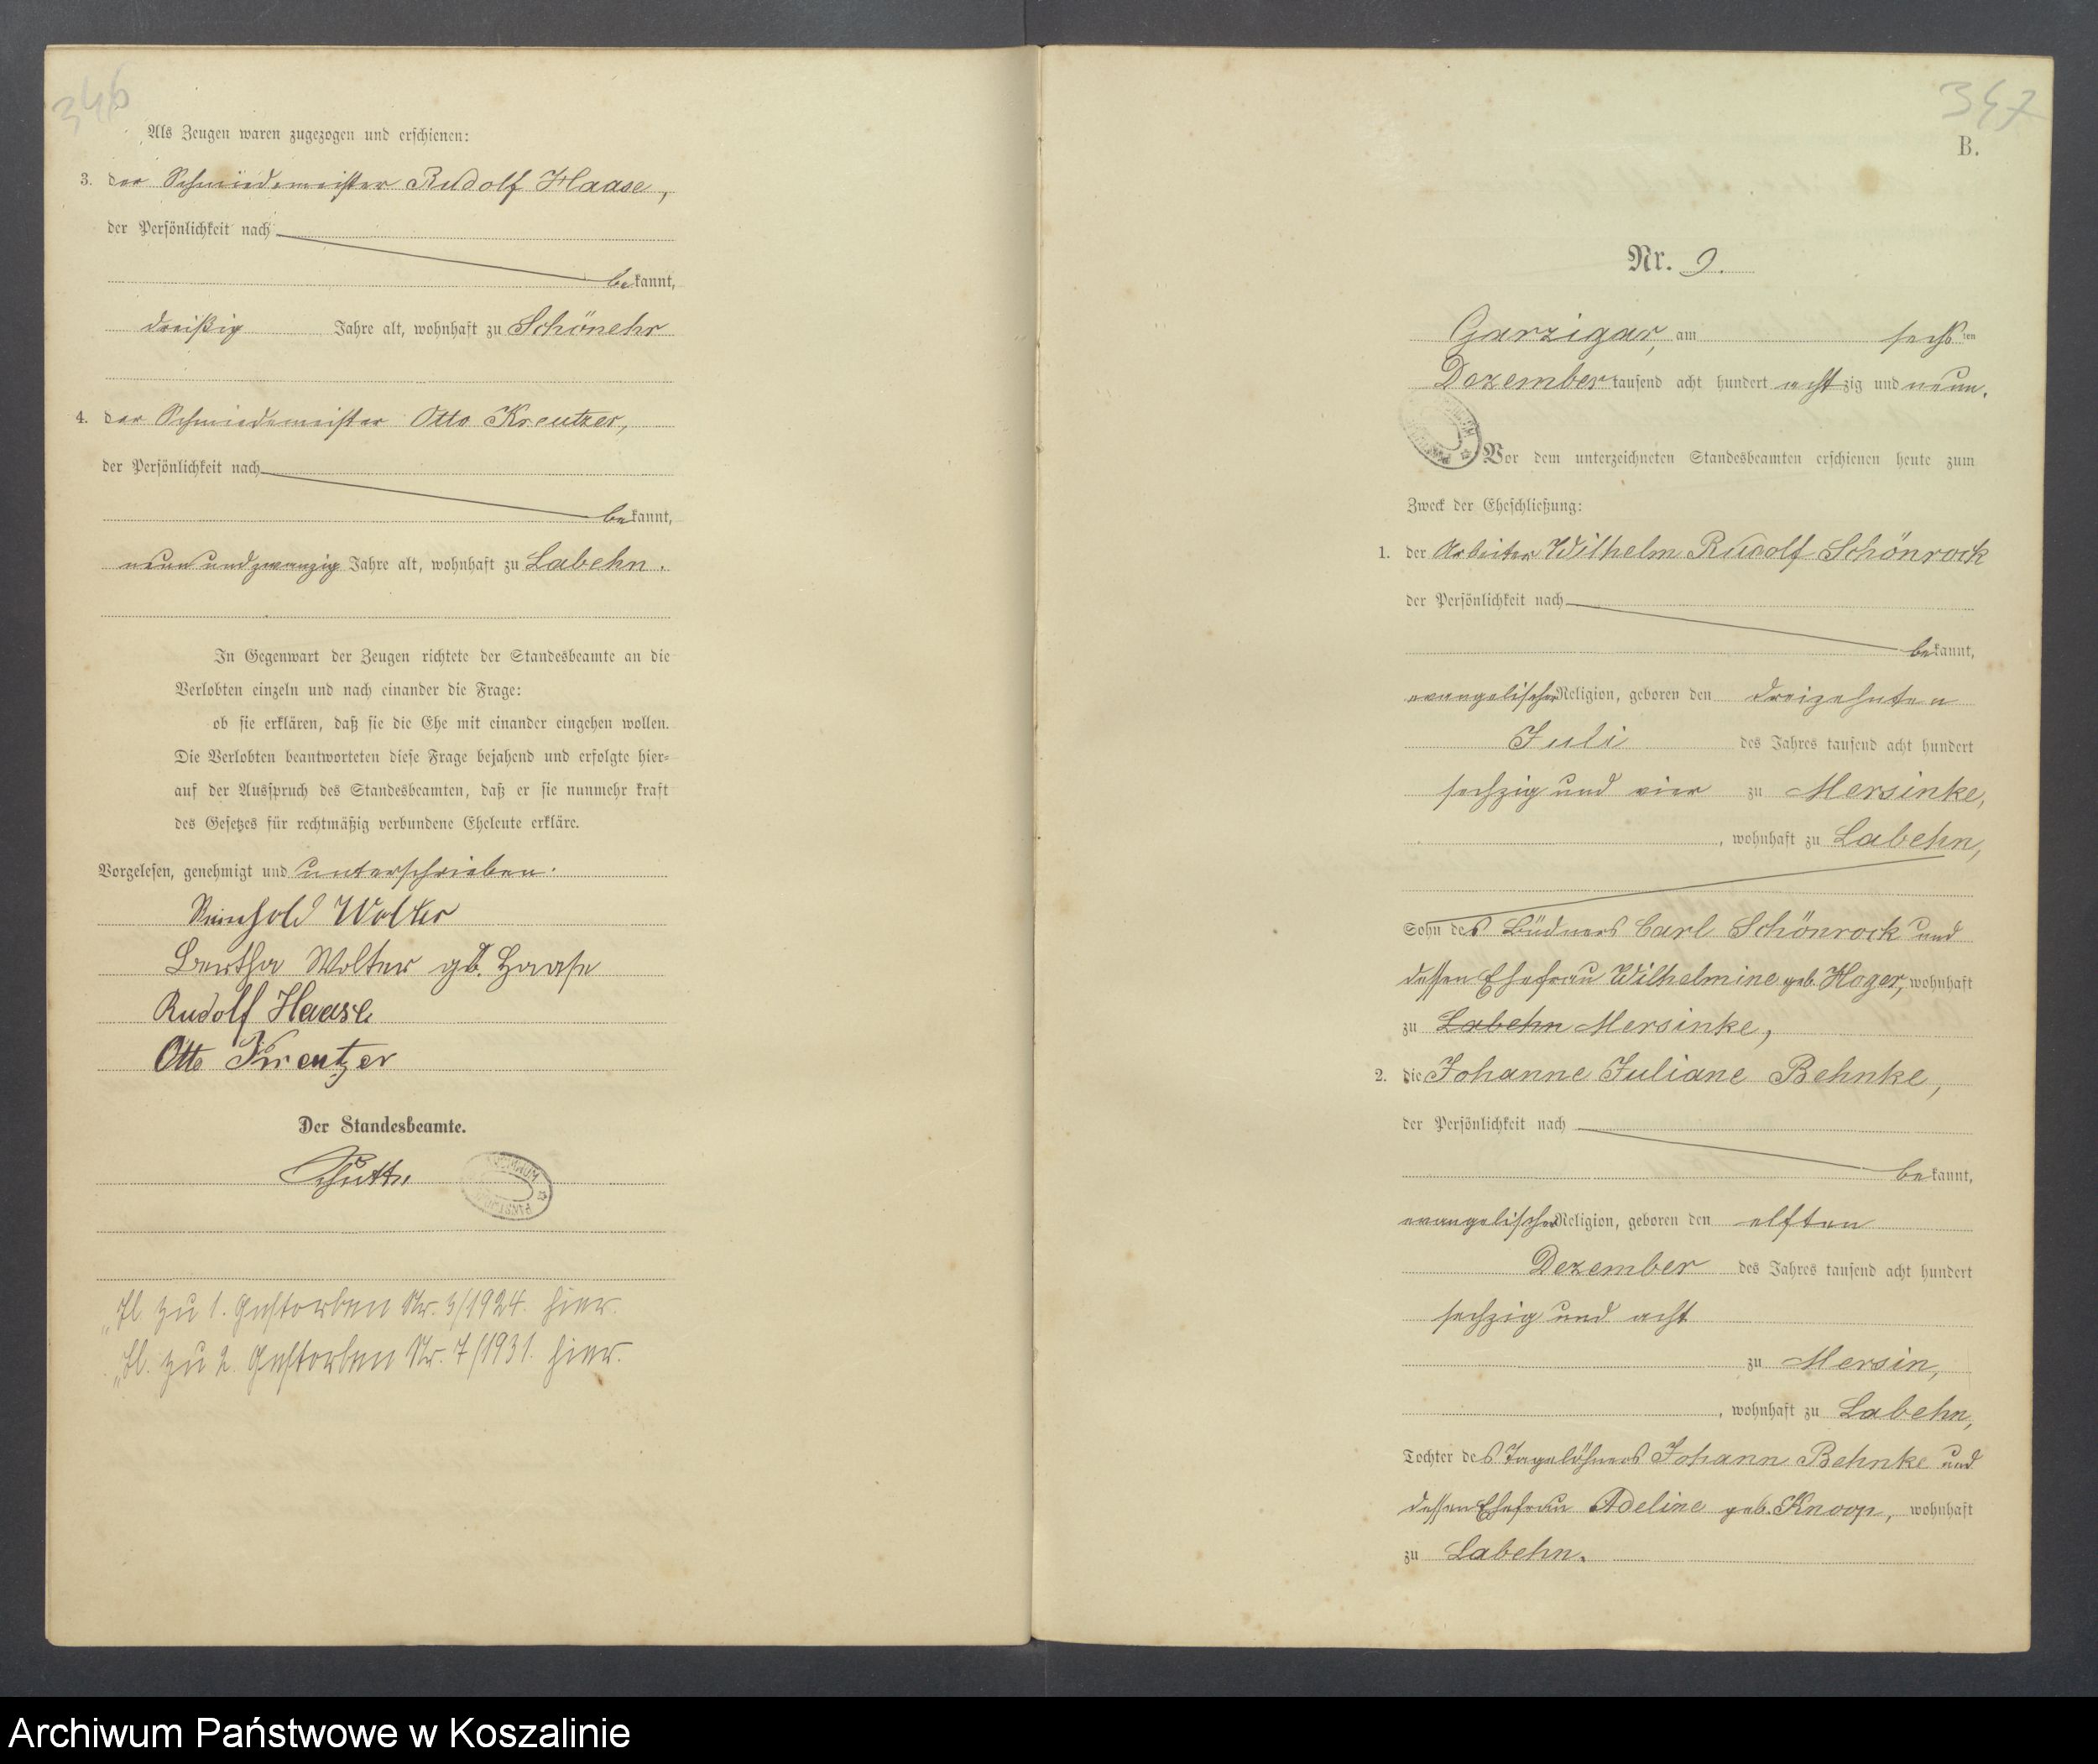 346
Als Zeugen waren zugezogen und erschienen:
3. der Schmiedemeister Rudolf Haase,
der Persönlichkeit nach
bekannt,
dreißig Jahre alt, wohnhaft zu Schönehr
4. der Schmiedemeister Otto Kreutzer,
der Persönlichkeit nach
bekannt,
neun und zwanzig Jahre alt, wohnhaft zu Labehn.
In Gegenwart der Zeugen richtete der Standesbeamte an die
Verlobten einzeln und nach einander die Frage:
ob sie erklären, daß sie die Ehe mit einander eingehen wollen.
Die Verlobten beantworteten diese Frage bejahend und erfolgte hier-
auf der Ausspruch des Standesbeamten, daß er sie nunmehr kraft
des Gesetzes für rechtmäßig verbundene Eheleute erkläre.
Vorgelesen, genehmigt und unterschrieben.
Reinhold Wolter
Bertha Wolter geb. Haase
Rudolf Haase
Otto Kreutzer
Der Standesbeamte.
zu 1. Gestorben Nr. 3/1924. hier.
zu 2. Gestorben Nr. 7/1931. hier.
347
B.
Nr. 9.
Garzigar, am sechsten
Dezember tausend acht hundert achtzig und neun.
Vor dem unterzeichneten Standesbeamten erschienen heute zum
Zweck der Eheschließung:
1. der Arbeiter Wilhelm Rudolf Schönrock
der Persönlichkeit nach
bekannt,
evangelischer Religion, geboren den dreizehnten
Juli des Jahres tausend acht hundert
sechzig und vier zu Mersinke,
, wohnhaft zu Labehn,
Sohn des Büdners Carl Schönrock und
dessen Ehefrau Wilhelmine geb. Hoger, wohnhaft
zu Labehn Mersinke,
2. die Johanne Juliane Behnke,
der Persönlichkeit nach
bekannt,
evangelischer Religion, geboren den elften
Dezember des Jahres tausend acht hundert
sechzig und acht
zu Mersin,
, wohnhaft zu Labehn,
Tochter des Tagelöhners Johann Behnke und
dessen Ehefrau Adeline geb. Knoop, wohnhaft
zu Labehn.
Archiwum Państwowe w Koszalinie